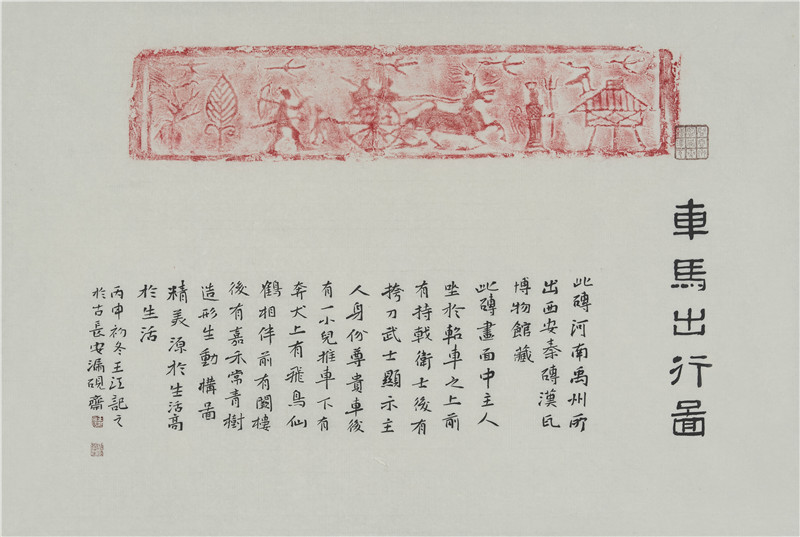 車馬出行圖
此磚河南禹州所
出西安秦磚漢瓦
博物館藏
此磚畫面中主人
坐於軺車之上前
有持戟衛士後有
挎刀武士顯示主
人身份尊貴車後
有一小兒推車下有
奔犬上有飛鳥仙
鶴相伴前有闕樓
後有嘉禾常青樹
造形生動構啚
精美源於生活高
於生活
丙申初冬王江記之
於古長安漏硯齋